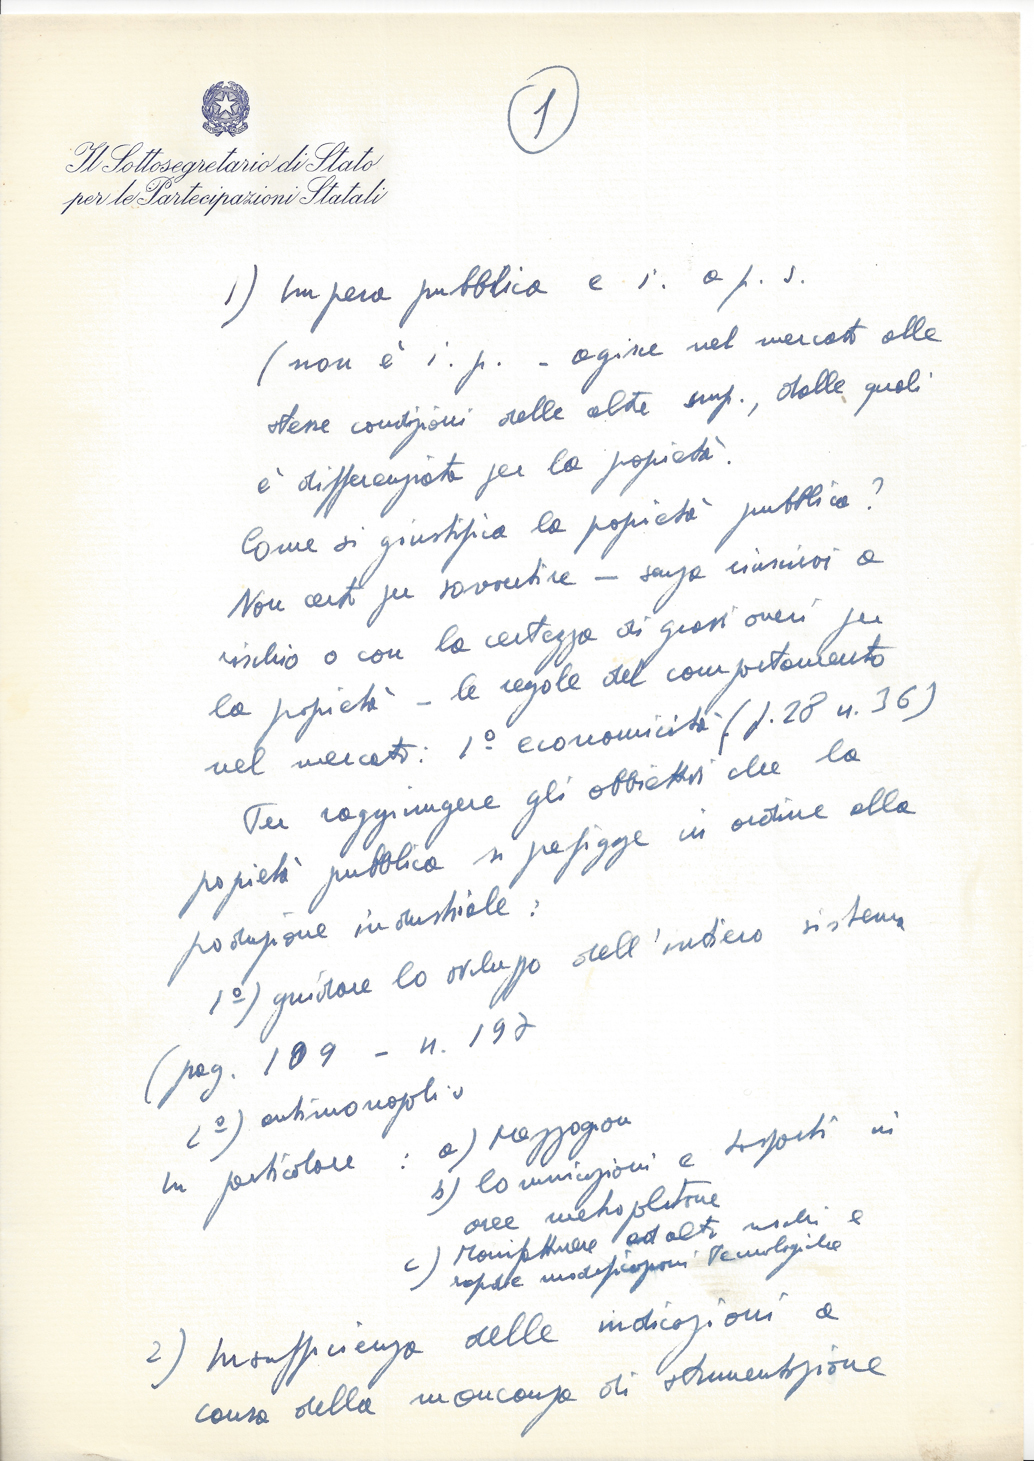 1
Il Sottosegretario di Stato
per le Partecipazioni Statali
1) Impresa pubblica e i. a p. s.
(non è i. p. - agisce nel mercato alle
stesse condizioni delle altre imp., dalle quali
è differenziata per la proprietà.
Come si giustifica la proprietà pubblica?
Non certo per sovvertire - senza riuscirvi a
rischio o con la certezza di grossi oneri per
la proprietà - le regole del comportamento
nel mercato: 1º economicità (p. 28 n. 36)
Per raggiungere gli obbiettivi che la
proprietà pubblica si prefigge in ordine alla
produzione industriale:
1º) guidare lo sviluppo dell'intero sistema
(pag. 109 - n. 197
2º) antimonopolio
In particolare : a) Mezzogiorno
b) Comunicazioni e trasporti in
aree metropolitane
c) Manifatturiere ad alti rischi e
rapide modificazioni tecnologiche
2) Insufficienza delle indicazioni a
causa della mancanza di strumentazione